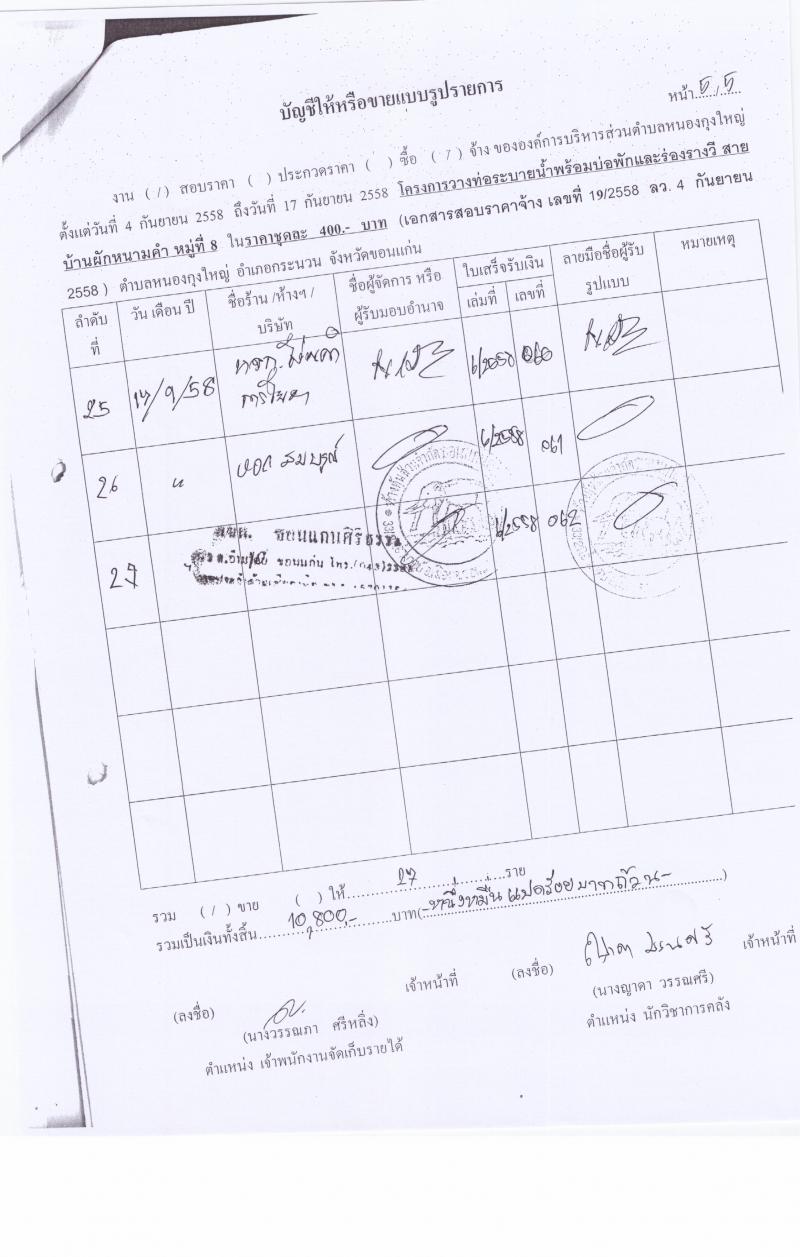 บัญชีให้หรือขายแบบรูปรายการ
หน้า 5/5
งาน ( / ) สอบราคา ( ) ประกวดราคา ( ) ซื้อ ( / ) จ้าง ขององค์การบริหารส่วนตำบลหนองกุงใหญ่
ตั้งแต่วันที่ 4 กันยายน 2558 ถึงวันที่ 17 กันยายน 2558 โครงการวางท่อระบายน้ำพร้อมบ่อพักและร่องรางวี สาย
บ้านผักหนามคำ หมู่ที่ 8 ในราคาชุดละ 400.- บาท (เอกสารสอบราคาจ้าง เลขที่ 19/2558 ลว. 4 กันยายน
2558 ) ตำบลหนองกุงใหญ่ อำเภอกระนวน จังหวัดขอนแก่น
ลำดับที่ วัน เดือน ปี ชื่อร้าน /ห้างฯ / บริษัท ชื่อผู้จัดการ หรือ ผู้รับมอบอำนาจ ใบเสร็จรับเงิน เล่มที่ เลขที่ ลายมือชื่อผู้รับรูปแบบ หมายเหตุ
25 17/9/58 หจก. การโยธา 6/2558 060
26 " หจก สมบูรณ์ 6/2558 061
27 6/2558 062
รวม ( / ) ขาย ( ) ให้ 27 ราย
รวมเป็นเงินทั้งสิ้น 10,800.- บาท(-หนึ่งหมื่นแปดร้อยบาทถ้วน-)
(ลงชื่อ) เจ้าหน้าที่
(นางวรรณภา ศรีหลิ่ง)
ตำแหน่ง เจ้าพนักงานจัดเก็บรายได้
(ลงชื่อ) เจ้าหน้าที่
(นางญาดา วรรณศรี)
ตำแหน่ง นักวิชาการคลัง